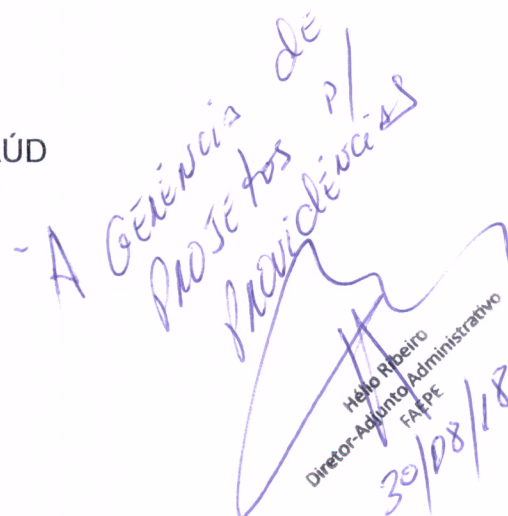 ÚD
- A GERÊNCIA de
PROJETOS P/
PROVIDÊNCIAS
Hélio Ribeiro
Diretor-Adjunto Administrativo
FAEPE
30/08/18